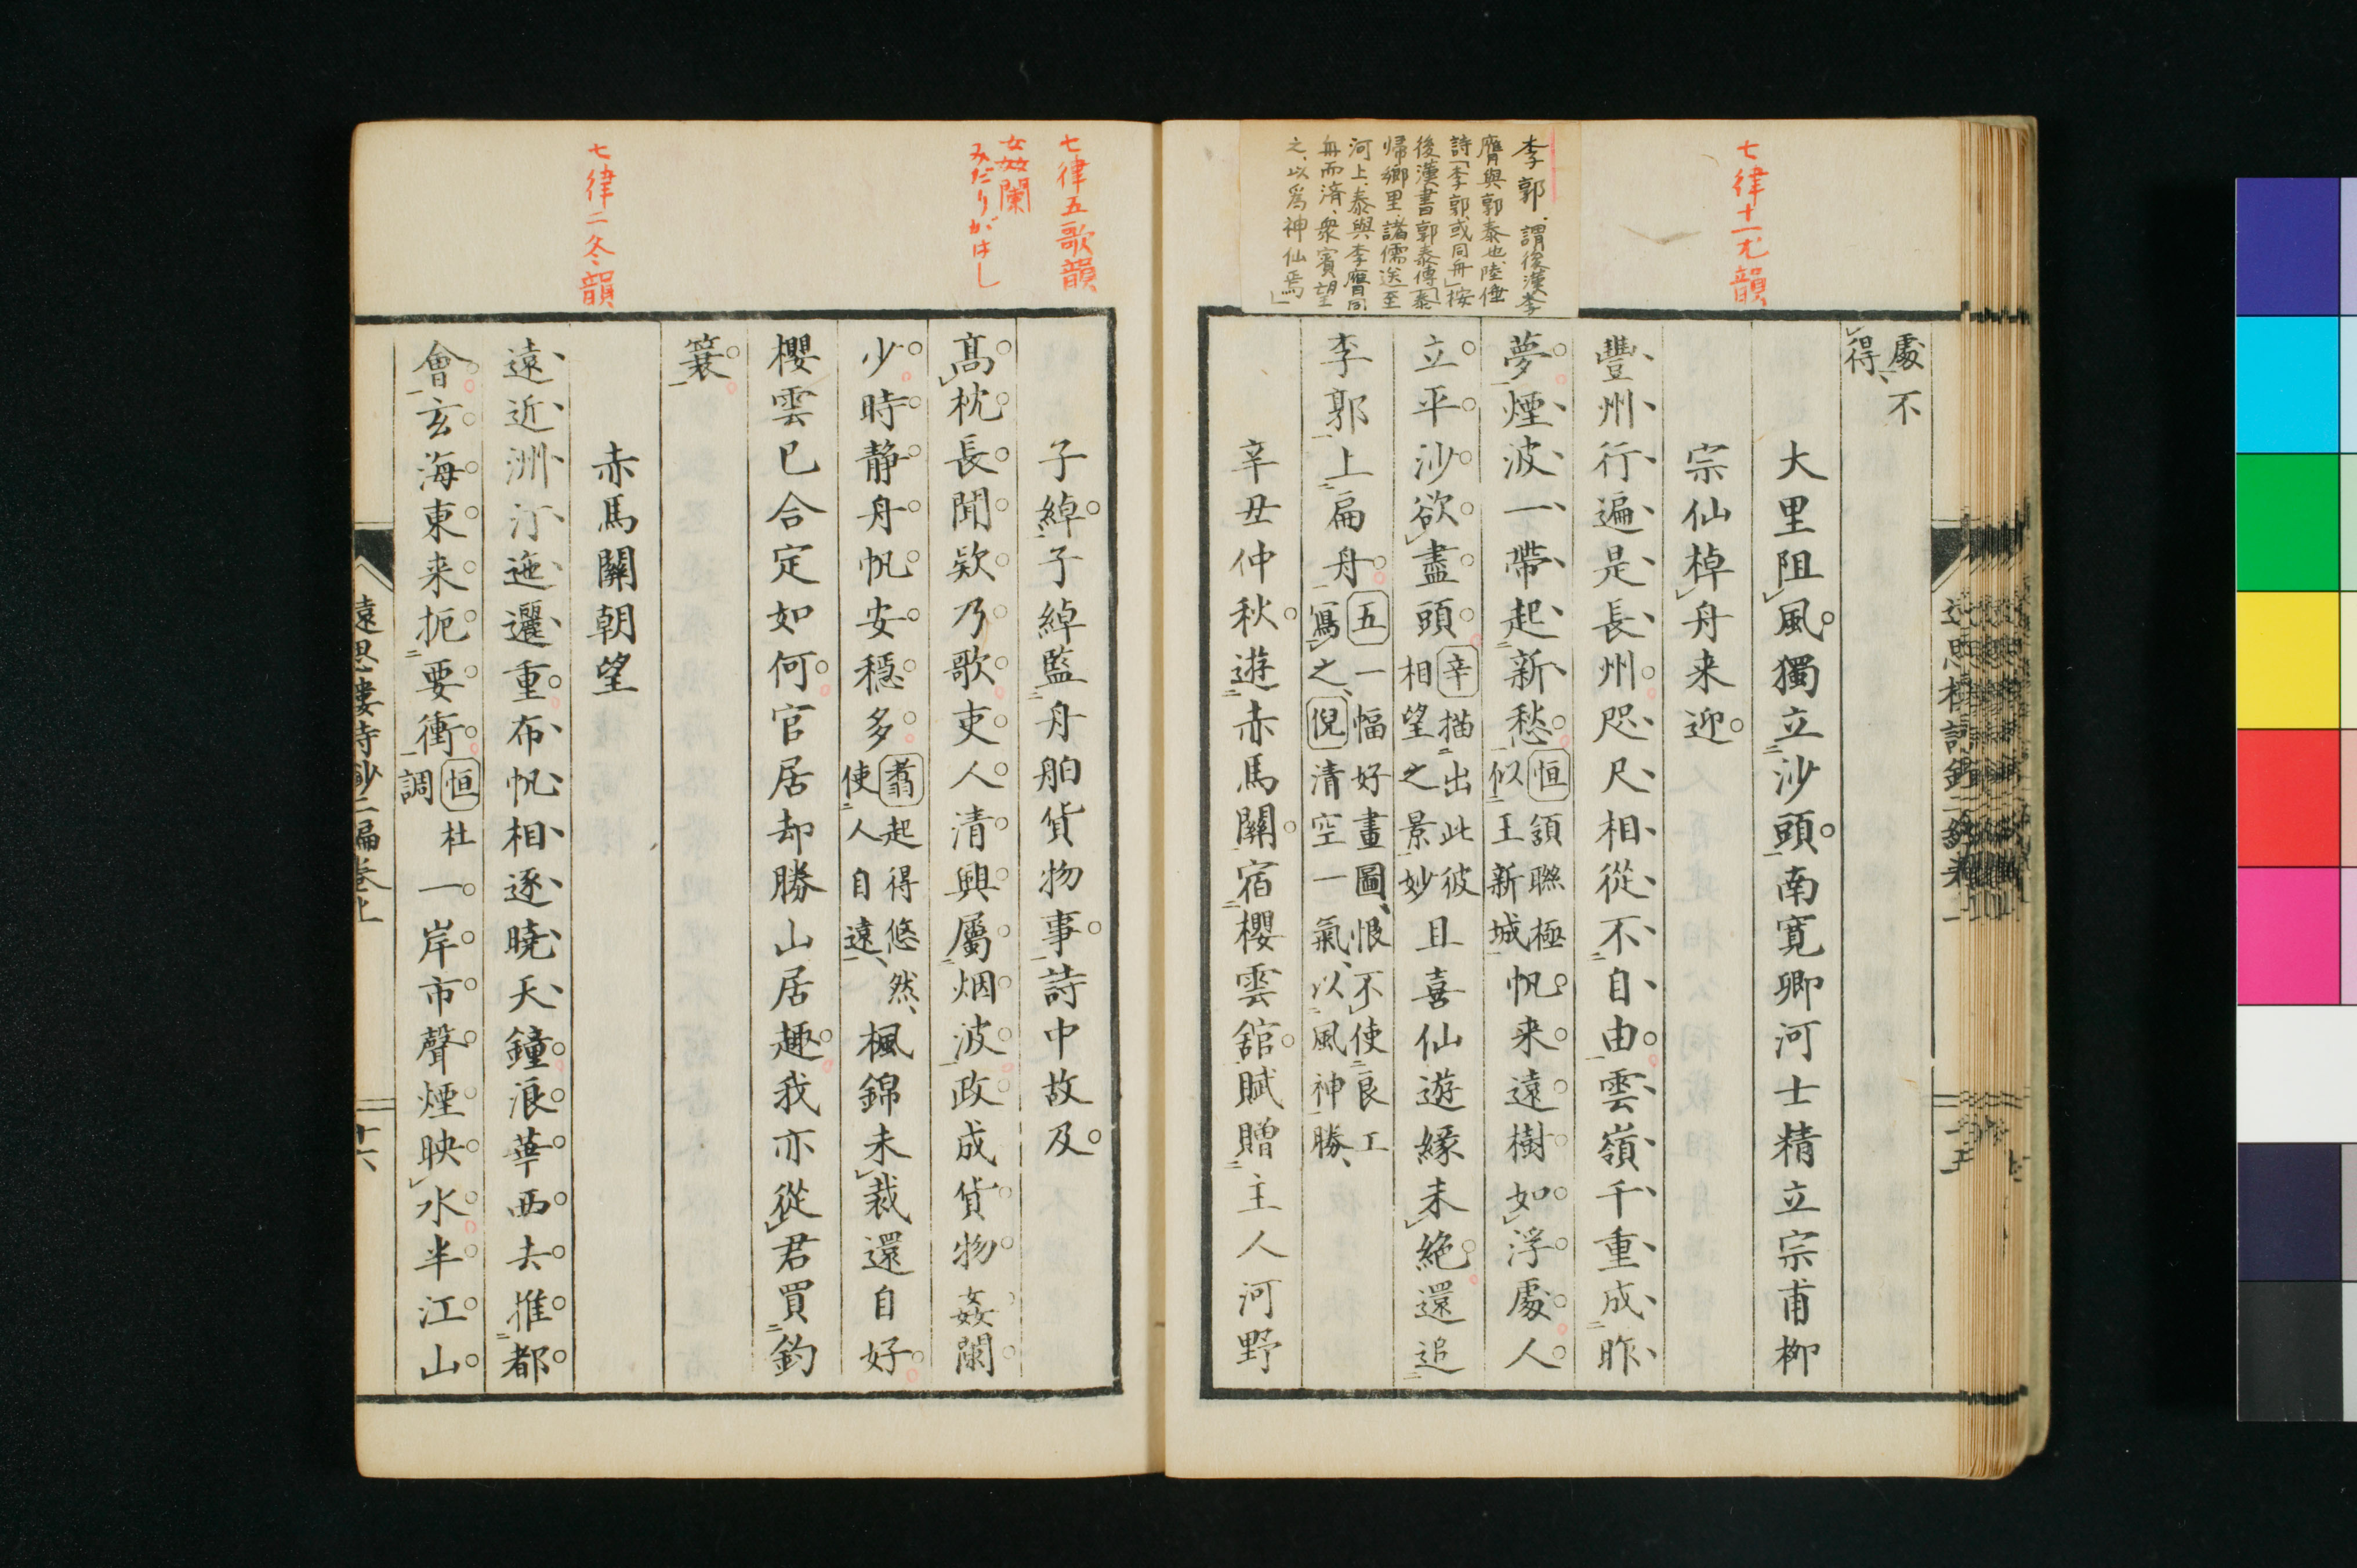 七律十一尤韻
李郭、謂後漢李
膺與郭泰也、陸倕
詩「李郭或同舟」按
後漢書郭泰傳「泰
帰鄉里、諸儒送至
河上、泰與李膺同
舟而済、衆賓望
之、以爲神仙焉」
處不
得、
大里阻風獨立沙頭南寛卿河士精立宗甫柳
宗仙棹舟来迎
豐州行遍是長州咫尺相從不自由雲嶺千重成昨
夢煙波一帶起新愁
恒頷聯極
似王新城
帆来遠樹如浮處人
立平沙欲盡頭
辛描出此彼
相望之景妙
且喜仙遊緣未絶還追
李郭上扁舟
五一幅好畫圖、恨不使良工
寫之、倪清空一氣、以風神勝、
辛丑仲秋遊赤馬關宿櫻雲舘賦贈主人河野
七律五歌韻
女姦闌
みだりがはし
七律二冬韻
子綽子綽監舟舶貨物事詩中故及
高枕長聞欵乃歌吏人清興屬烟波政成貨物姦闌
少時静舟帆安穩多
翥起得悠然、
使人自遠、
楓錦未裁還自好
櫻雲已合定如何官居却勝山居趣我亦從君買釣
簑
赤馬關朝望
遠近洲汀迤邐重布帆相逐曉天鐘浪華西去推都
會玄海東来扼要衝
恒杜
調
一岸市聲煙映水半江山
遠思樓詩鈔二編卷上
十六